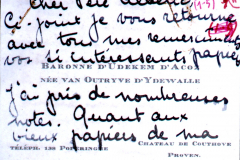 Cher Père
Ci-joint je vous retourne
avec tous mes remerciements
vos si intéressants papiers
BARONNE D'UDEKEM D'ACOZ
NÉE VAN OUTRYVE D'YDEWALLE
j'ai pris de nombreuses
notes. Quant aux
vieux papiers de ma
TÉLÉPH. 133 POPERINGHE
CHATEAU DE COUTHOVE
PROVEN.